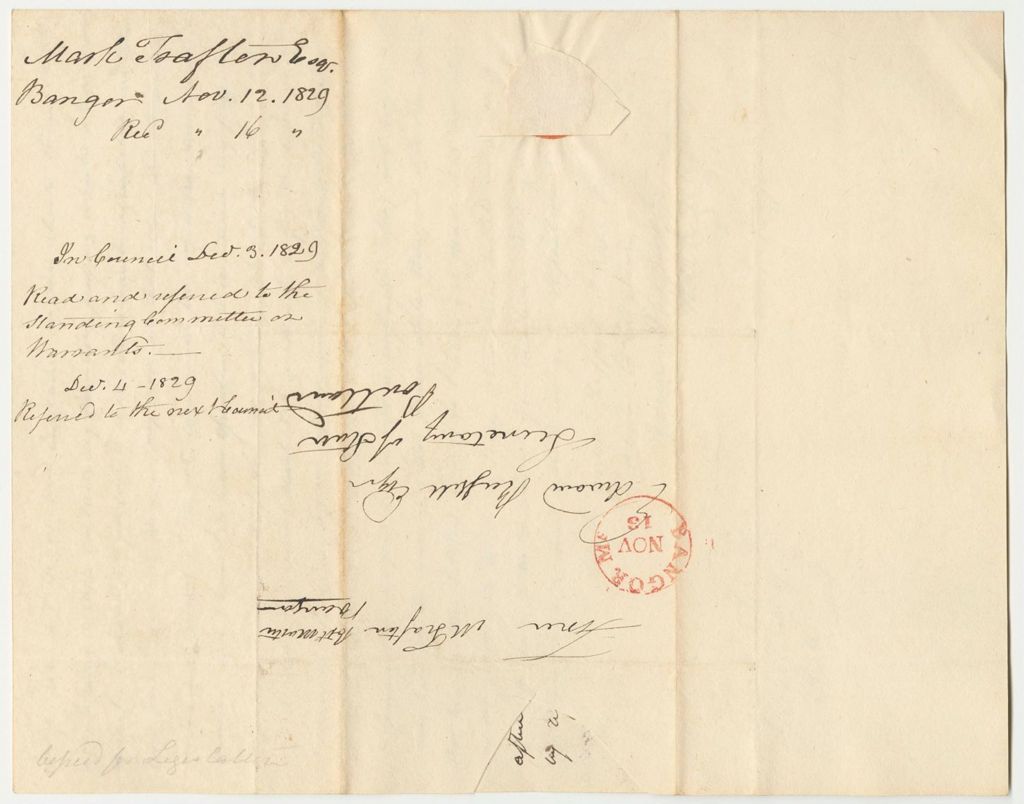 Mark Trafton Esqr.
Bangor Nov. 12. 1829
Recd " 16 "
In Council Dec. 3. 1829
Read and referred to the
Standing Committee on
Warrants.
Dec. 4 - 1829
Referred to the next Council
Free M Trafton Postmaster
Bangor
BANGOR Me
NOV
13
Edward Russell Esqr
Secretary of State
Portland
Copied for Legislature